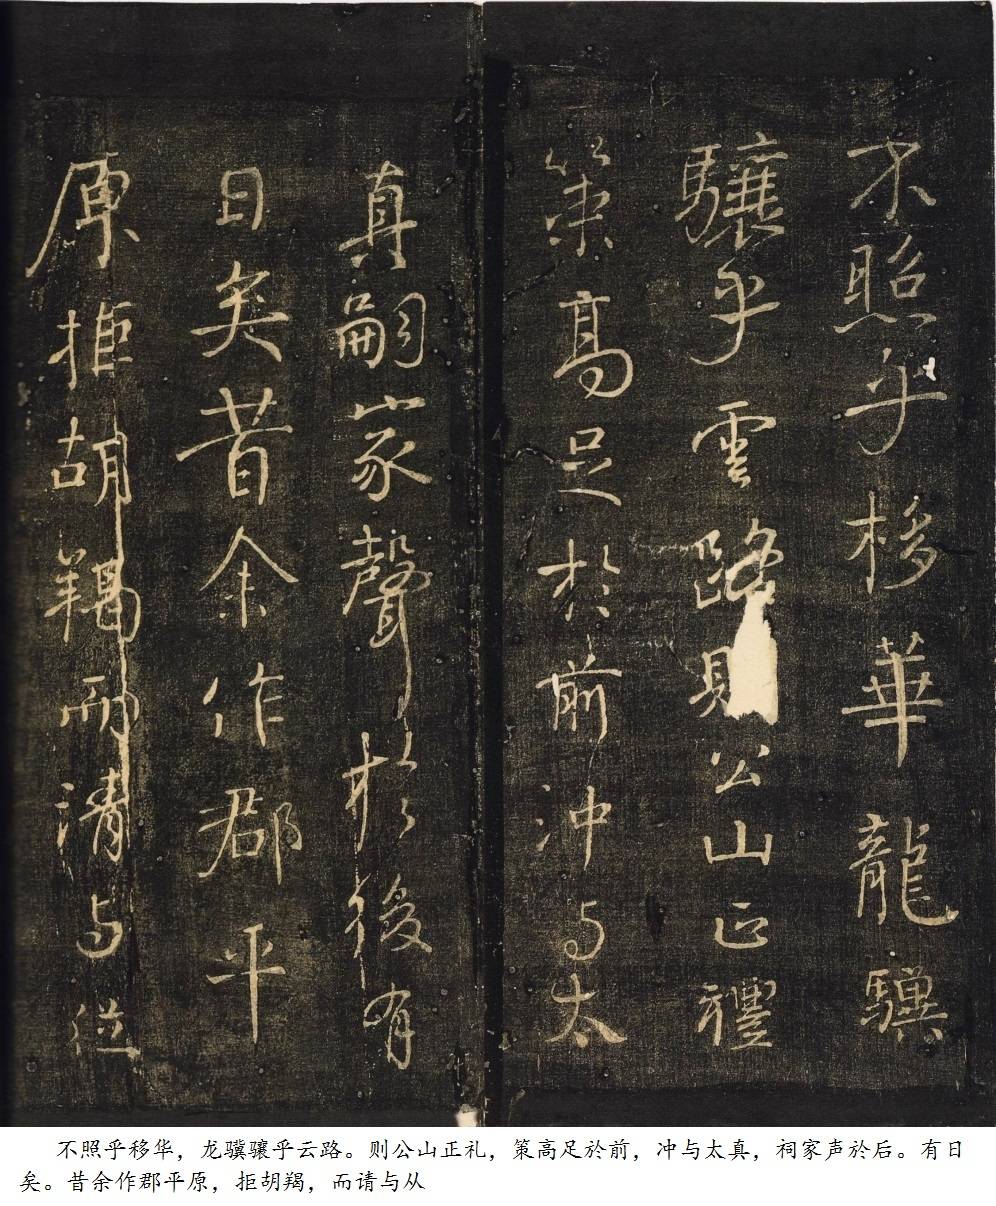 不照乎移華龍驥
驤乎雲路則公山正禮
策高足於前沖与太
真嗣家聲於後有
日矣昔余作郡平
原拒胡羯而請与從
不照乎移华，龙骥骧乎云路。则公山正礼，策高足於前，冲与太真，祠家声於后。有日
矣。昔余作郡平原，拒胡羯，而请与从